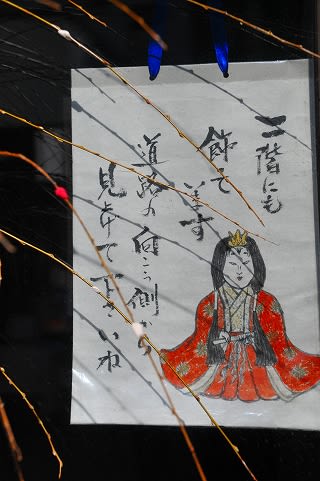 二階にも
飾て
ます
道路の向こう側から
見上げて下さいね